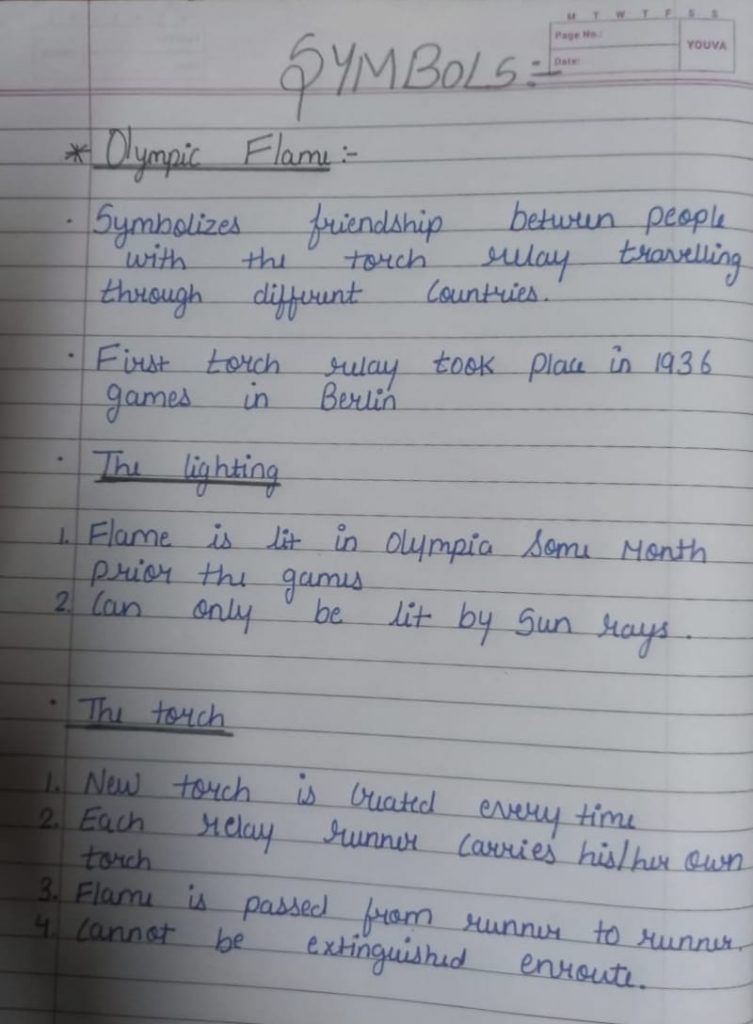 M T W T F S S
Page No.:
Date:
YOUVA
SYMBOLS:-
* Olympic Flame :-
· Symbolizes friendship between people
with the torch relay travelling
through different Countries.
· First torch relay took place in 1936
games in Berlin
· The lighting
1. Flame is lit in Olympia Some Month
prior the games
2. Can only be lit by Sun rays.
· The torch
1. New torch is Created every time
2. Each relay runner Carries his/her own
torch
3. Flame is passed from runner to runner.
4. Cannot be extinguished enroute.